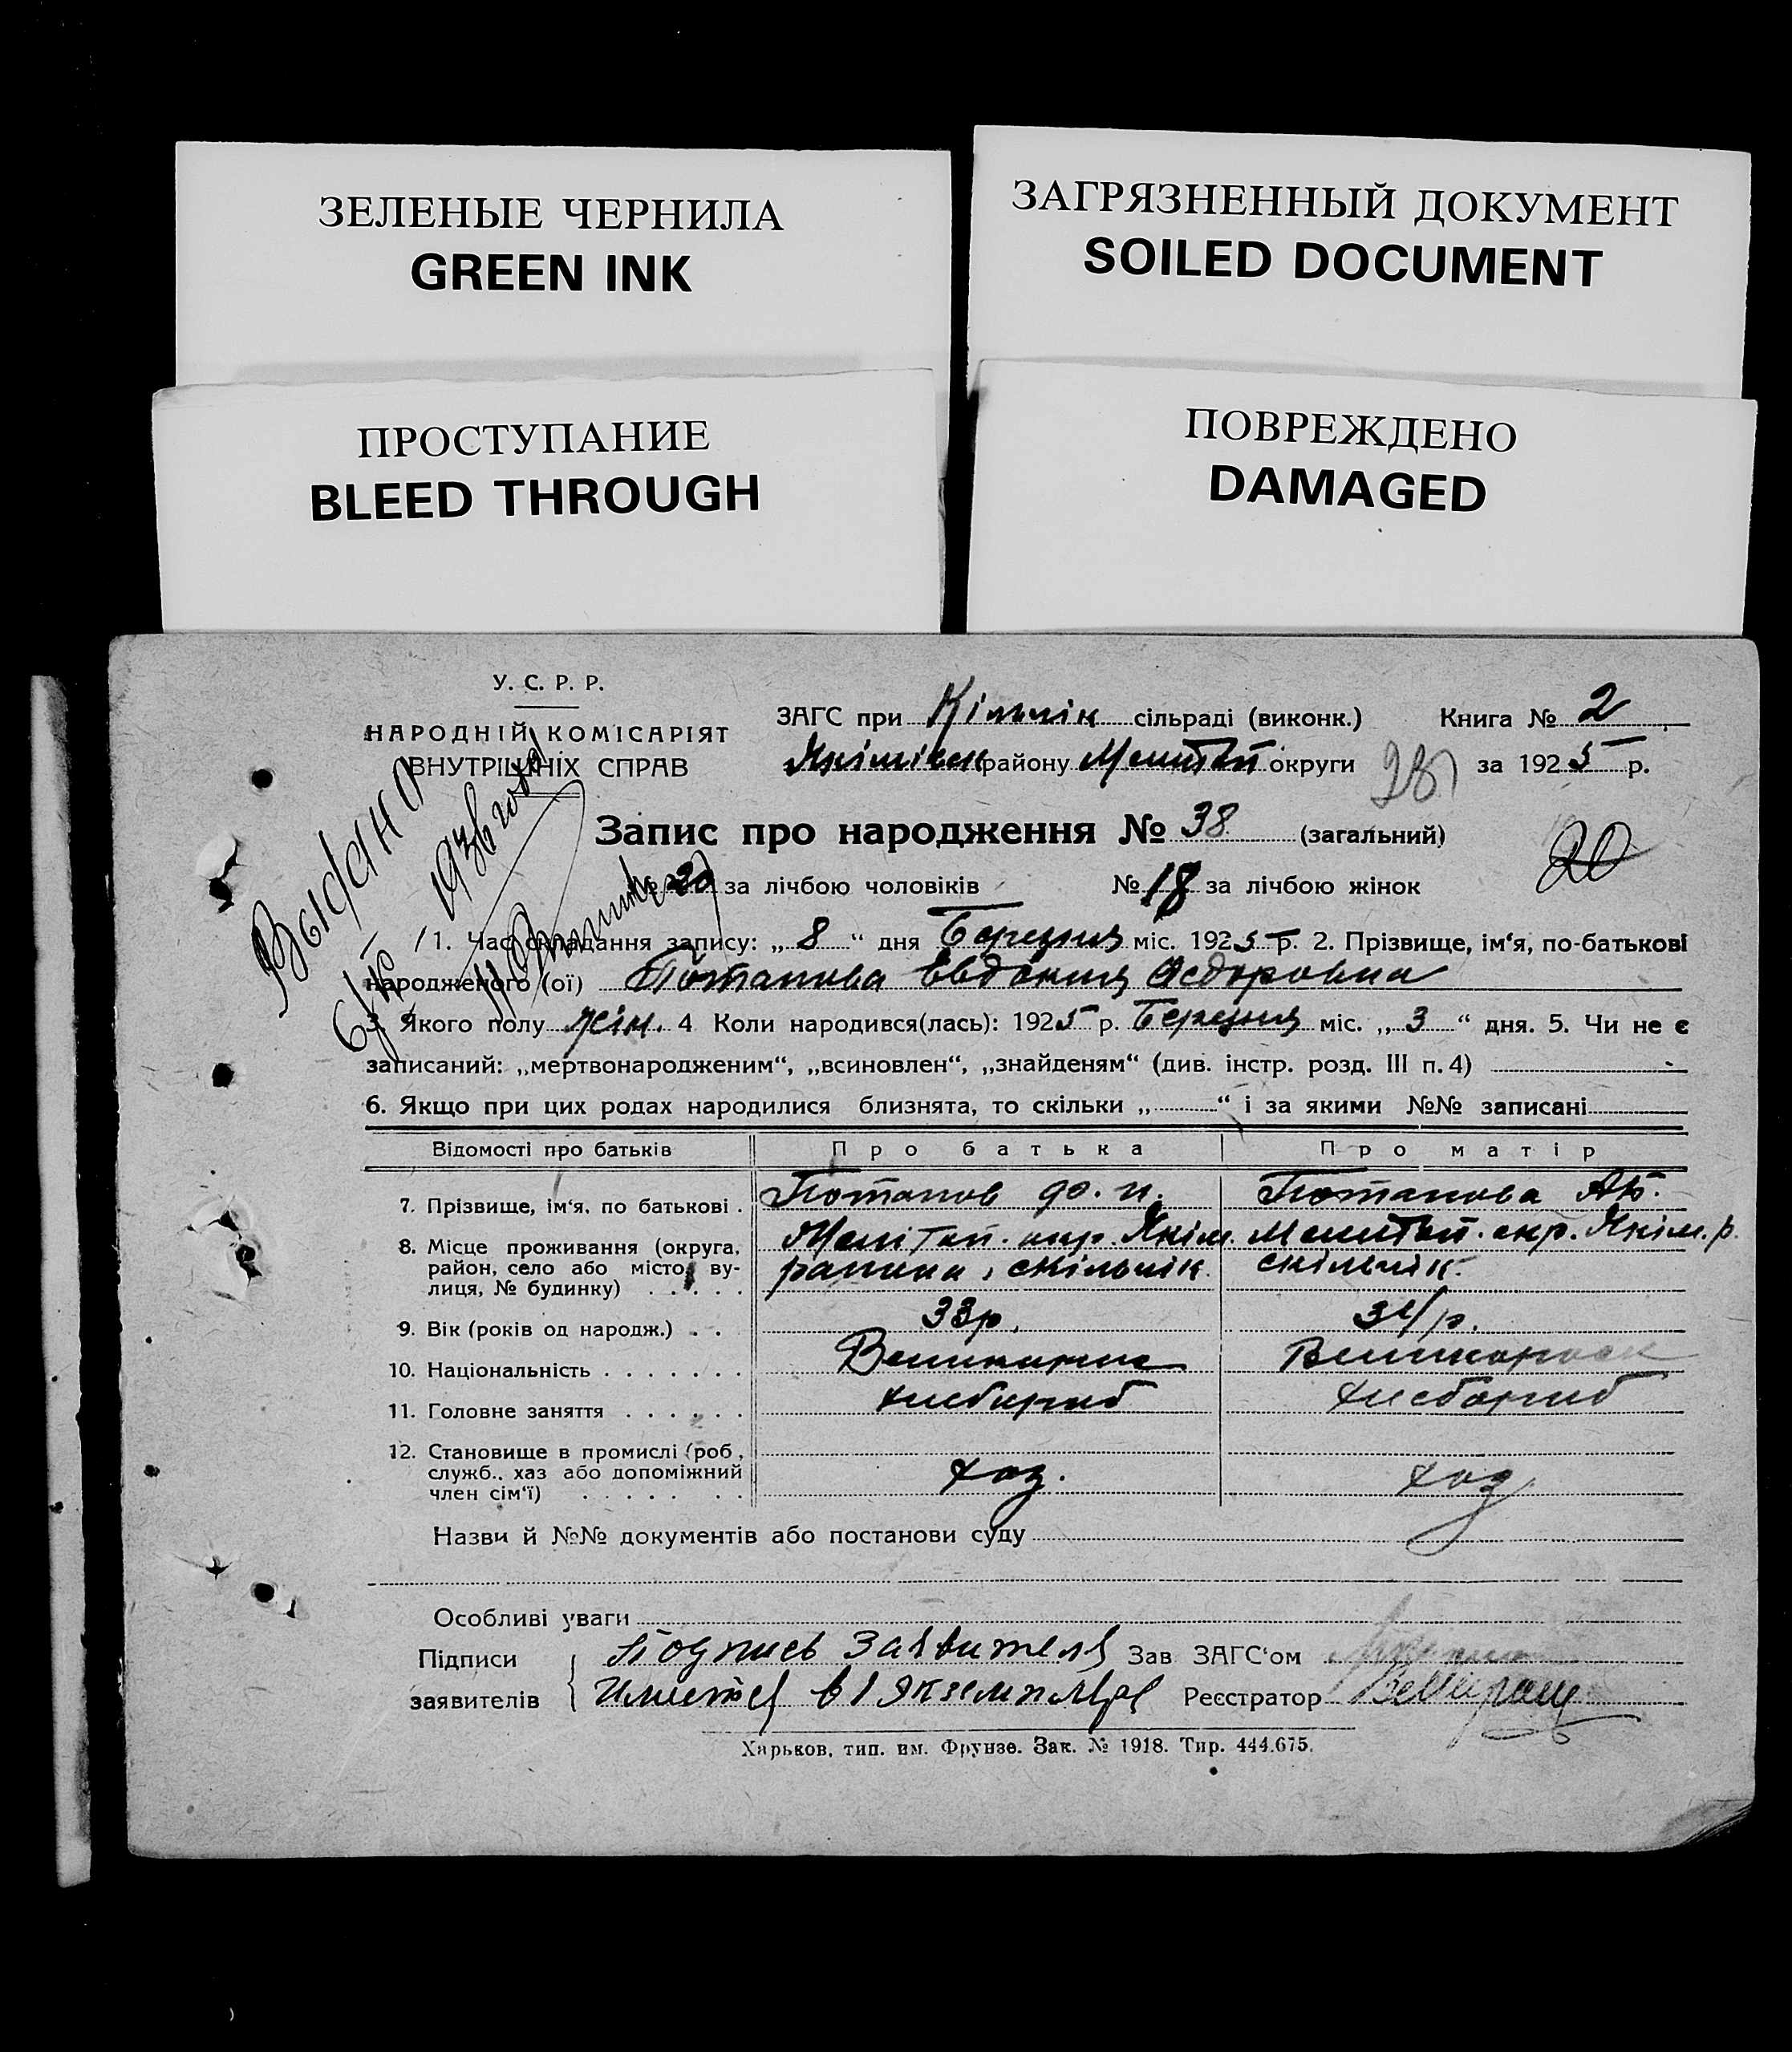 ЗЕЛЕНЫЕ ЧЕРНИЛА
GREEN INK
ЗАГРЯЗНЕННЫЙ ДОКУМЕНТ
SOILED DOCUMENT
ПРОСТУПАНИЕ
BLEED THROUGH
ПОВРЕЖДЕНО
DAMAGED
У. С. Р. Р.
НАРОДНІЙ КОМІСАРІЯТ
ВНУТРІШНІХ СПРАВ
ЗАГС при Кільчік сільраді (виконк.) Книга № 2
Якімівськ району Меліт округи за 1925 р.
Запис про народження № 38 (загальний)
№ 20 за лічбою чоловіків № 18 за лічбою жінок
20
Выдано
6/IV 1936 года
1. Час складання запису: „ 8 “ дня Березня міс. 1925 р. 2. Прізвище, ім‘я, по-батькові
народженого (ої) Потапова Евдокия Федоровна
3. Якого полу жін. 4 Коли народився(лась): 1925 р. Березня міс. „ 3 “ дня. 5. Чи не є
записаний: „мертвонародженим“, „всиновлен“, „знайденям“ (див. інстр. розд. III п. 4) -
6. Якщо при цих родах народилися близнята, то скільки „ “ і за якими №№ записані
Відомості про батьків Про батька Про матір
7. Прізвище, ім‘я, по батькові . Потапов Ф. И. Потапова Ак.
8. Місце проживання (округа, район, село або місто, вулиця, № будинку) Мелітоп. окр. Якім. района, с Кільчік Мелітоп. окр. Якім. р. с Кільчік
9. Вік (років од народж.) . . 33 р. 34 р.
10. Національність Великорос Великорос
11. Головне заняття хлебороб хлебороб
12. Становище в промислі (роб., служб., хаз або допоміжний член сім‘ї) хоз. хоз
Назви й №№ документів або постанови суду
Особливі уваги
Підписи Подпись Заявителя Зав ЗАГС‘ом
заявителів Имеется в 1 экземпляре Реєстратор
Харьков, тип. им. Фрунзе. Зак. № 1918. Тир. 444.675.